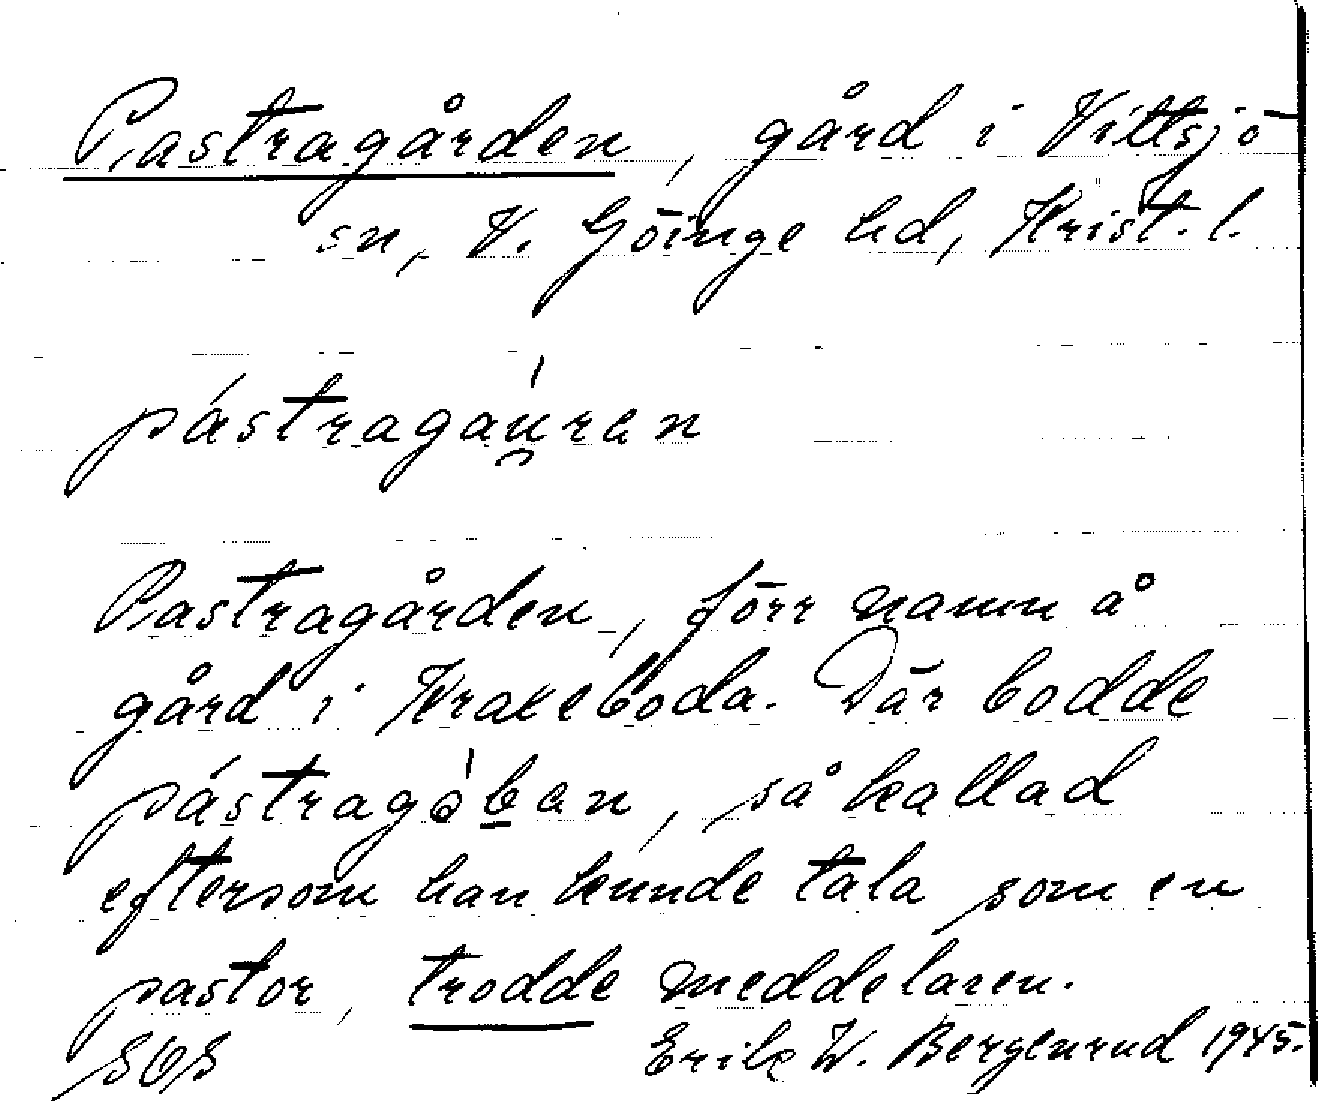 Pastragården, gård i Vittsjö
sn, V. Göinge hd, Krist. l.
pástragáu̯ren
Pastragården, förr namn å
gård i Krakeboda. Där bodde
pástragȯ́ben, så kallad
eftersom han kunde tala som en
pastor, trodde meddelaren.
Erik W. Bergenrud 1945.